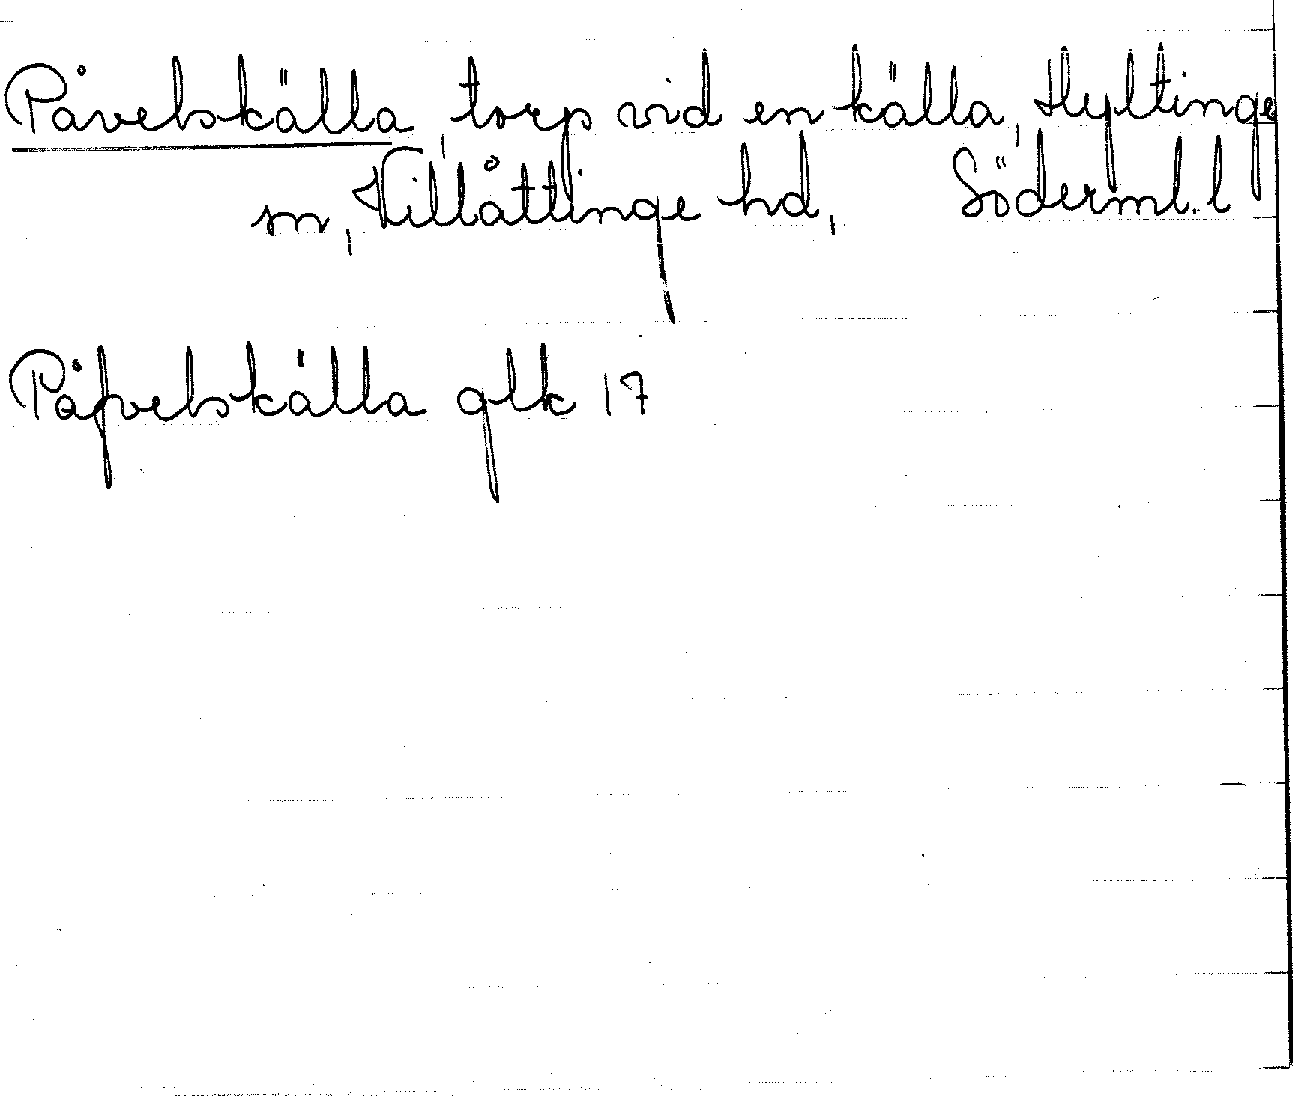 Påvelskälla, torp vid en källa, Hyltinge
sn, Villåttinge hd, Söderml. l
Påfvelskälla glk 17